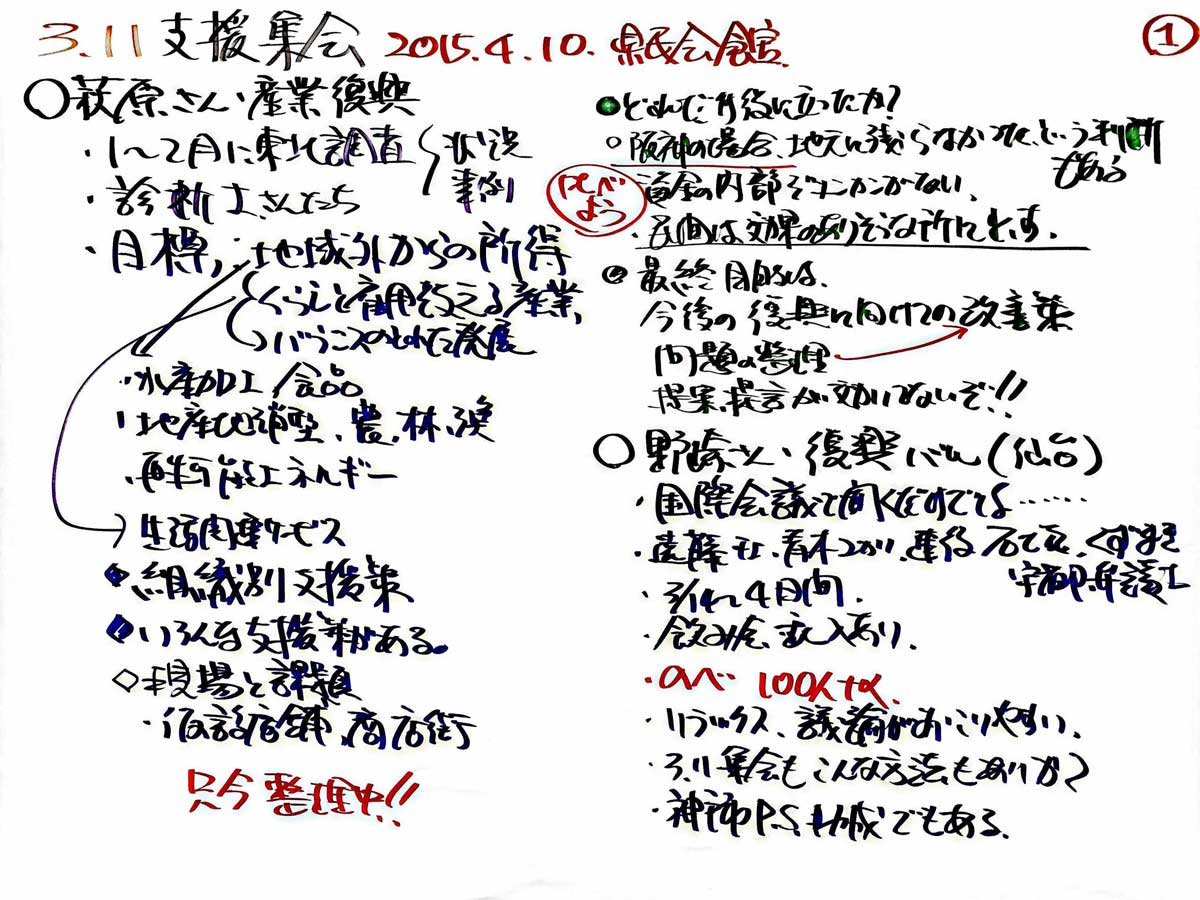 3.11 支援集会 2015.4.10. 県民会館 ①
○萩原さん・産業復興
・1〜2月に東北調査 状況 事例
・診断士さんたち
・目標, :地域外からの所得
くらしと雇用を支える産業,
バランスのとれた発展
・水産加工, 食品
・地産地消型、農, 林, 漁
・再生可能エネルギー
生活関連サービス
◆組織別支援策
◆いろんな支援策がある。
◇現場と課題
・仮設店舗、商店街
只今整理中!!
●どれだけ役に立ったか?
○阪神の場合、地元に残らなかった、という判断もある
のべよう
資金の内部ジュンカンがない、
・民間は効果のありそうな所に出す.
●最終目的は、
今後の復興に向けての改善策
問題の整理
提案、提言が効いてないぞ!!
○野崎さん・復興バル(仙台)
・国際会議で聞くだけでは……
・遠藤
弁護士
・3/14〜4日間.
・飲み会、収入あり.
・のべ 100人+α.
・リラックス、議論がおこりやすい.
・3.11集会もこんな方法もありか?
・神戸P.S.助成でもある.